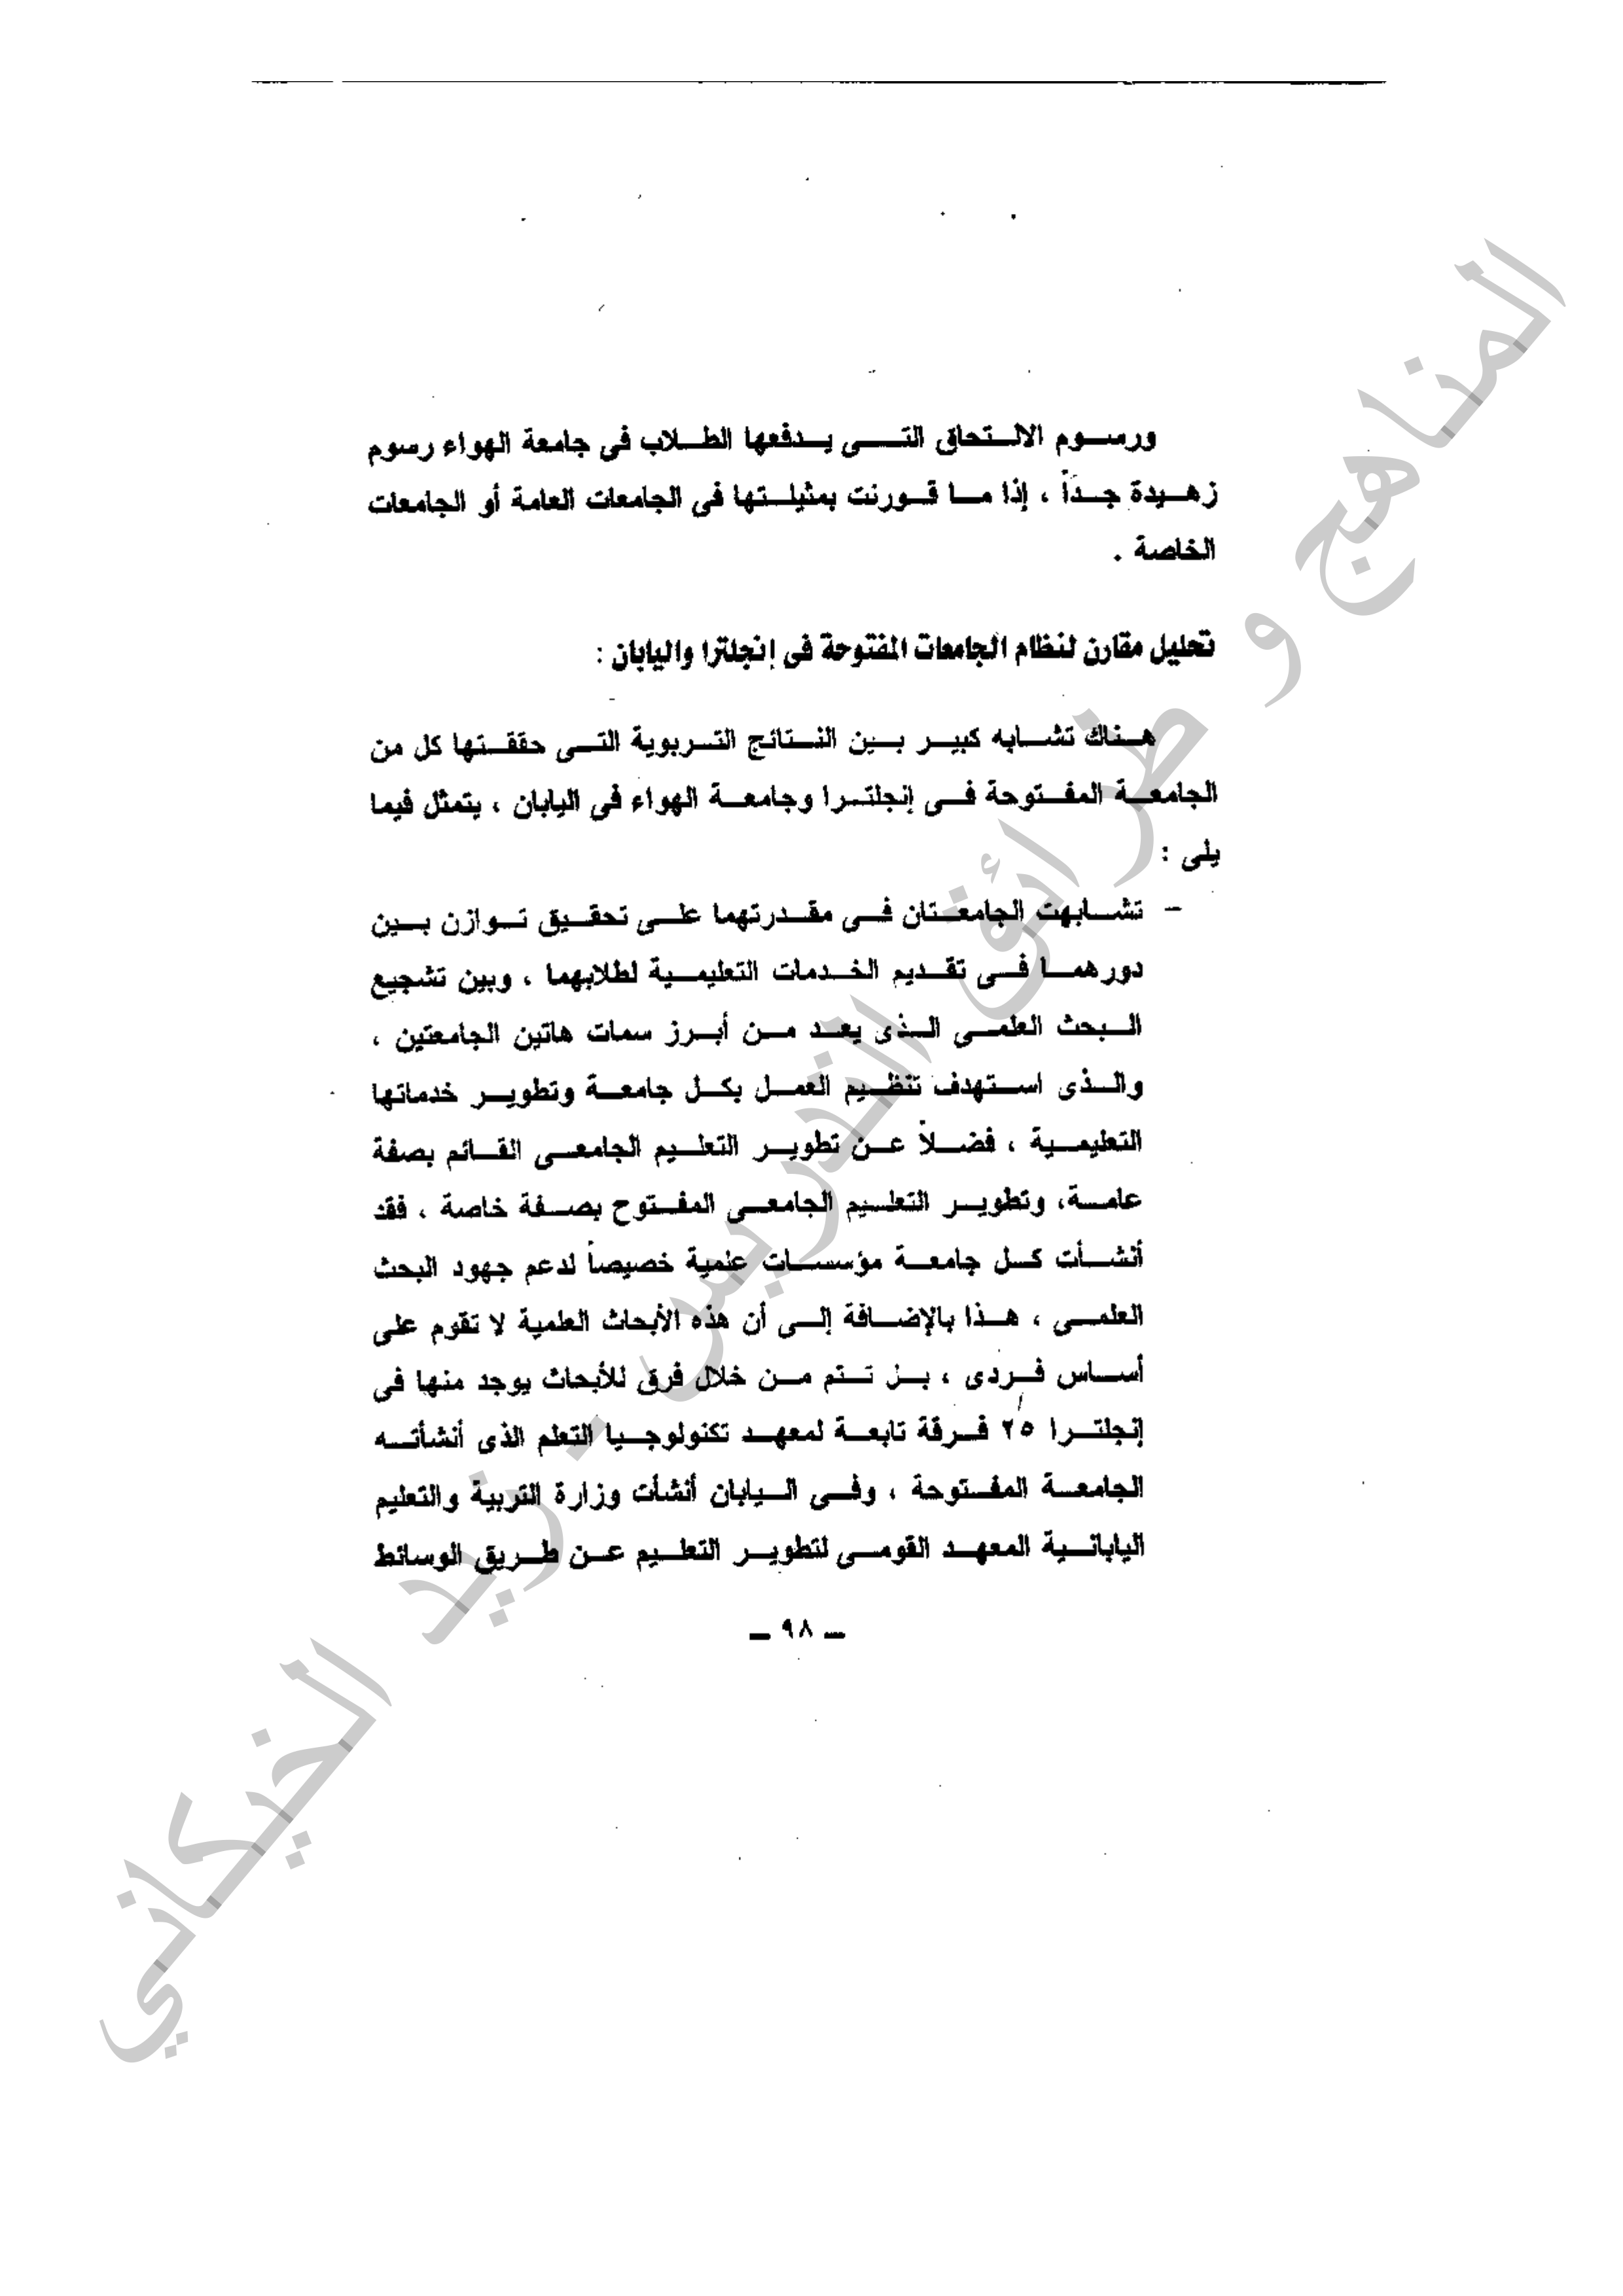 ورسوم الالتحاق التى يدفعها الطلاب فى جامعة الهواء رسوم
زهيدة جداً ، إذا ما قورنت بمثيلتها فى الجامعات العامة أو الجامعات
الخاصة .
تحليل مقارن لنظام الجامعات المفتوحة فى إنجلترا واليابان :
هناك تشابه كبير بين النتائج التربوية التى حققتها كل من
الجامعة المفتوحة فى إنجلترا وجامعة الهواء فى اليابان ، يتمثل فيما
يلى :
– تشابهت الجامعتان فى مقدرتهما على تحقيق توازن بين
دورهما فى تقديم الخدمات التعليمية لطلابهما ، وبين تشجيع
البحث العلمى الذى يعد من أبرز سمات هاتين الجامعتين ،
والذى استهدف تنظيم العمل بكل جامعة وتطوير خدماتها
التعليمية ، فضلاً عن تطوير التعليم الجامعى القائم بصفة
عامة، وتطوير التعليم الجامعى المفتوح بصفة خاصة ، فقد
أنشأت كل جامعة مؤسسات علمية خصيصاً لدعم جهود البحث
العلمى ، هذا بالإضافة إلى أن هذه الأبحاث العلمية لا تقوم على
أساس فردى ، بل تتم من خلال فرق للأبحاث يوجد منها فى
إنجلترا ٢٥ فرقة تابعة لمعهد تكنولوجيا التعلم الذى أنشأته
الجامعة المفتوحة ، وفى اليابان أنشأت وزارة التربية والتعليم
اليابانية المعهد القومى لتطوير التعليم عن طريق الوسائط
ــ ٩٨ ــ
المناهج و طرائق التدريس - زيد الخيكاني